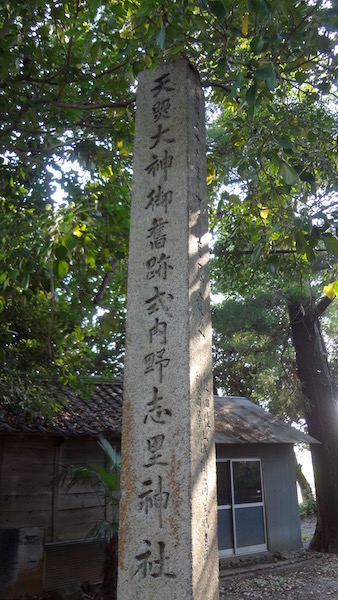 天照大神御舊跡式内野志里神社